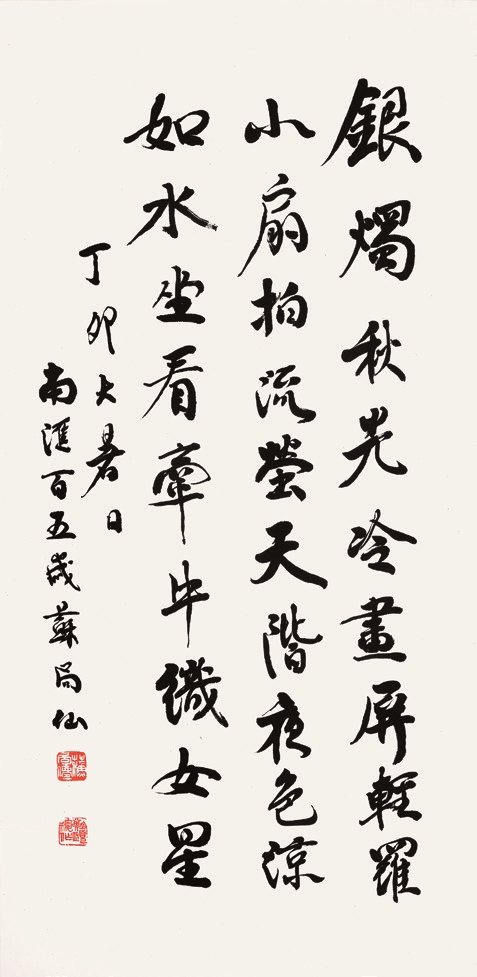 銀燭秋光冷畫屏輕羅
小扇拍流螢天階夜色涼
如水坐看牽牛織女星
丁卯大暑日
南滙百五歲蘇局仙